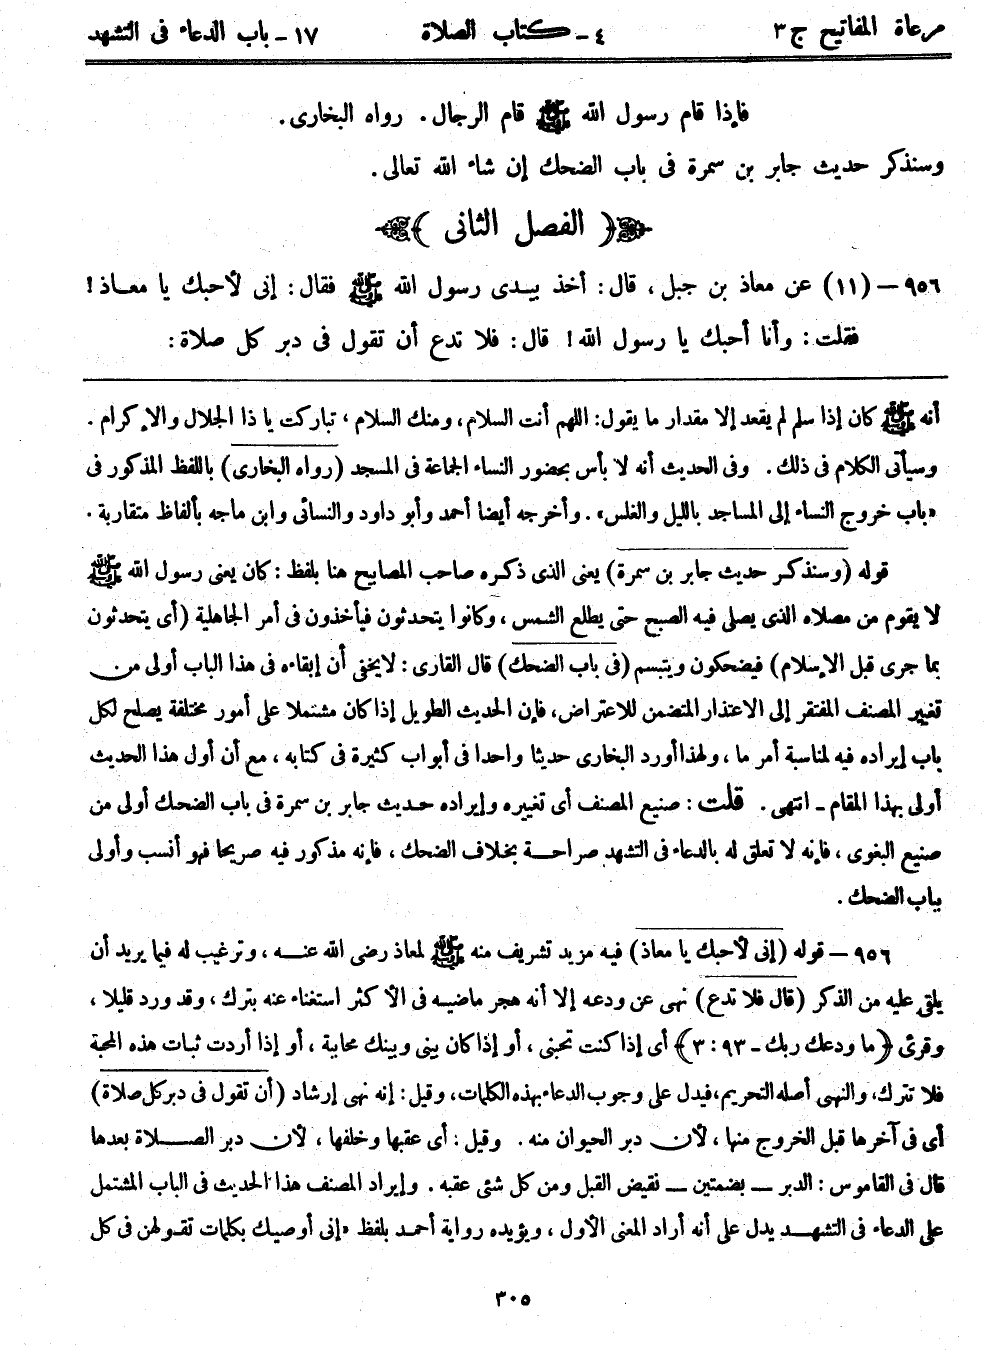 مرعاة المفاتيح ج ٣ ٤ - كتاب الصلاة ١٧ - باب الدعاء فى التشهد
فإذا قام رسول الله ﷺ قام الرجال. رواه البخارى.
وسنذكر حديث جابر بن سمرة فى باب الضحك إن شاء الله تعالى.
﴿ الفصل الثانى ﴾
٩٥٦ – (١١) عن معاذ بن جبل، قال: أخذ بيدى رسول الله ﷺ فقال: إنى لأحبك يا معاذ!
فقلت: وأنا أحبك يا رسول الله! قال: فلا تدع أن تقول فى دبر كل صلاة:
أنه ﷺ كان إذا سلم لم يقعد إلا مقدار ما يقول: اللهم أنت السلام، ومنك السلام، تباركت يا ذا الجلال والإكرام.
وسيأتى الكلام فى ذلك. وفى الحديث أنه لا بأس بحضور النساء الجماعة فى المسجد (رواه البخارى) باللفظ المذكور فى
«باب خروج النساء إلى المساجد بالليل والغلس». وأخرجه أيضا أحمد وأبو داود والنسائى وابن ماجه بألفاظ متقاربة.
قوله (وسنذكر حديث جابر بن سمرة) يعنى الذى ذكره صاحب المصابيح هنا بلفظ: كان يعنى رسول الله ﷺ
لا يقوم من مصلاه الذى يصلى فيه الصبح حتى يطلع الشمس، وكانوا يتحدثون فيأخذون فى أمر الجاهلية (أى يتحدثون
بما جرى قبل الإسلام) فيضحكون ويتبسم (فى باب الضحك) قال القارى: لا يخفى أن إبقاءه فى هذا الباب أولى من
تغيير المصنف المفتقر إلى الاعتذار المتضمن للاعتراض، فإن الحديث الطويل إذا كان مشتملا على أمور مختلفة يصلح لكل
باب إيراده فيه لمناسبة أمر ما، ولهذا أورد البخارى حديثا واحدا فى أبواب كثيرة فى كتابه، مع أن أول هذا الحديث
أولى بهذا المقام - انتهى. قلت: صنيع المصنف أى تغييره وإيراده حديث جابر بن سمرة فى باب الضحك أولى من
صنيع البغوى، فإنه لا تعلق له بالدعاء فى التشهد صراحة بخلاف الضحك، فإنه مذكور فيه صريحا فهو أنسب وأولى
بباب الضحك.
٩٥٦ – قوله (إنى لأحبك يا معاذ) فيه مزيد تشريف منه ﷺ لمعاذ رضى الله عنه، وترغيب له فيما يريد أن
يلقى عليه من الذكر (قال فلا تدع) نهى عن ودعه إلا أنه هجر ماضيه فى الأكثر استغناء عنه بترك، وقد ورد قليلا،
وقرئ ﴿ما ودعك ربك - ٩٣: ٣﴾ أى إذا كنت تحبنى، أو إذا كان بينى وبينك محابة، أو إذا أردت ثبات هذه المحبة
فلا تترك، والنهى أصله التحريم، فيدل على وجوب الدعاء بهذه الكلمات، وقيل: إنه نهى إرشاد (أن تقول فى دبر كل صلاة)
أى فى آخرها قبل الخروج منها، لأن دبر الحيوان منه. وقيل: أى عقبها وخلفها، لأن دبر الصلاة بعدها
قال فى القاموس: الدبر – بضمتين – نقيض القبل ومن كل شئى عقبه. وإيراد المصنف هذا الحديث فى الباب المشتمل
على الدعاء فى التشهد يدل على أنه أراد المعنى الأول، ويؤيده رواية أحمد بلفظ «إنى أوصيك بكلمات تقولهن فى كل
٣٠٥